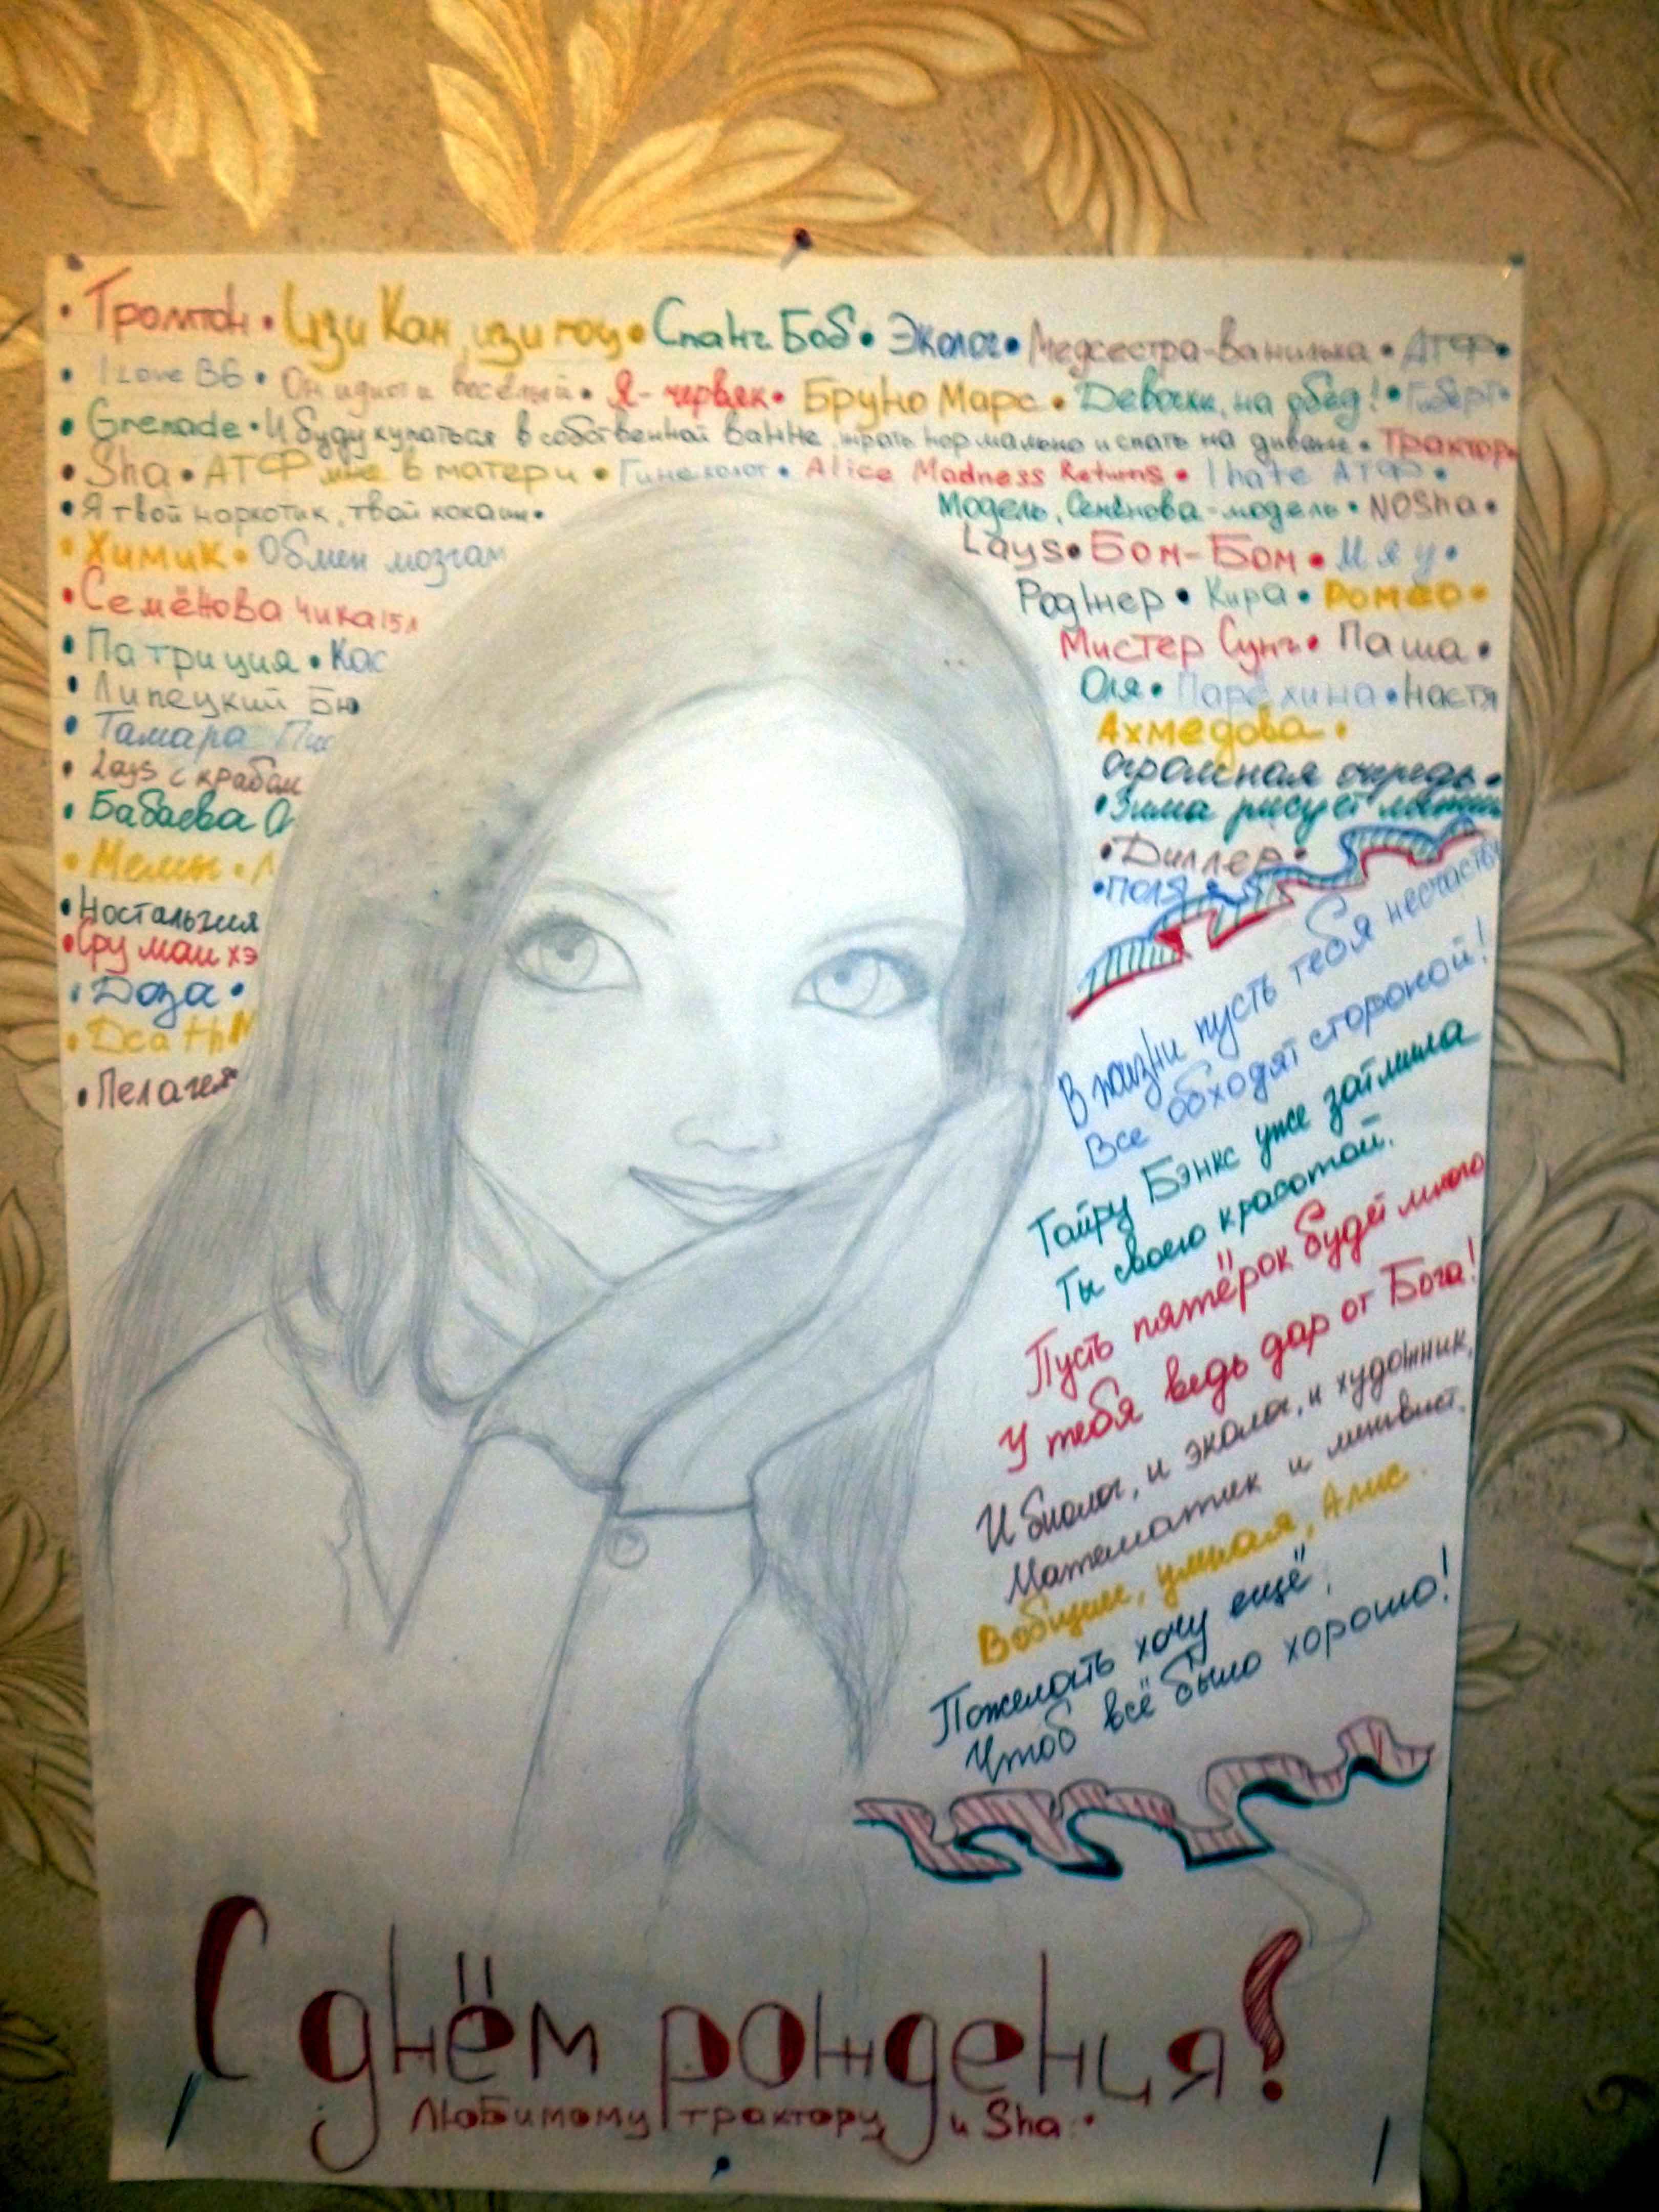 • Тромтон • Изи Кан, изи гоу • Спанч Боб • Эколог • Медсестра-ванилька • АТФ •
• I Love B6 • Он идиот и весёлый • Я - червяк • Бруно Марс • Девочки, на обед! •
• Grenade • И буду купаться в собственной ванне, жрать нормально и спать на диване • Трактор
• Sha • АТФ мне в матери • Гинеколог • Alice Madness Returns • I hate АТФ •
• Я твой наркотик, твой кокаин •
Модель, Семёнова - модель • NOSha •
• Химик • Обмен мозгам
Lays • Бом-Бом • Мяу •
• Семёнова чика
Роджер • Кира • Ромео •
• Патриция • Кас
Мистер Сунг • Паша •
• Липецкий Бю
Оля • Парёхина • Настя
• Тамара
Ахмедова •
• Lays с крабом
огромная очередь •
• Бабаева О
• Зима рисует
• Диллер •
• Поля
• Ностальгия
• Доза •
• Death N
• Пелагея
В жизни пусть тебя несчастья
Все обходят стороной!
Тайру Бэнкс уже затмила
Ты своею красотой.
Пусть пятёрок будет много
У тебя ведь дар от Бога!
И биолог, и эколог, и художник,
Математик и лингвист.
Вобщем, умная, Алис.
Пожелать хочу ещё,
Чтоб всё было хорошо!
С днём рожденья!
Любимому трактору и Sha